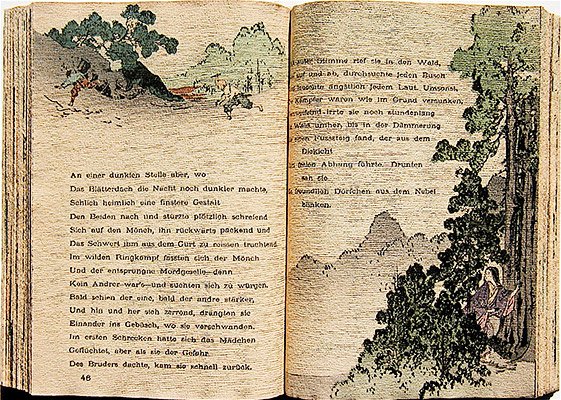 An einer dunklen Stelle aber, wo
Das Blätterdach die Nacht noch dunkler machte,
Schlich heimlich eine finstere Gestalt
Den Beiden nach und stürzte plötzlich schreiend
Sich auf den Mönch, ihn rückwärts packend und
Das Schwert ihm aus dem Gurt zu reissen trachtend
Im wilden Ringkampf fassten sich der Mönch
Und der entsprungne Mordgeselle—denn
Kein Andrer war's—und suchten sich zu würgen.
Bald schien der eine, bald der andre stärker,
Und hin und her sich zerrend, drängten sie
Einander ins Gebüsch, wo sie verschwanden.
Im ersten Schrecken hatte sich das Mädchen
Geflüchtet, aber als sie der Gefahr
Des Bruders dachte, kam sie schnell zurück.
46
Stimme rief sie in den Wald,
auf und ab, durchsuchte jeden Busch
ängstlich jedem Laut. Umsonst,
Kämpfer waren wie im Grund versunken,
irrte sie noch stundenlang
Wald umher, bis in der Dämmerung
Fusssteig fand, der aus dem
Dickicht
freien Abhang führte. Drunten
sah sie
freundlich Dörfchen aus dem Nebel
blinken.